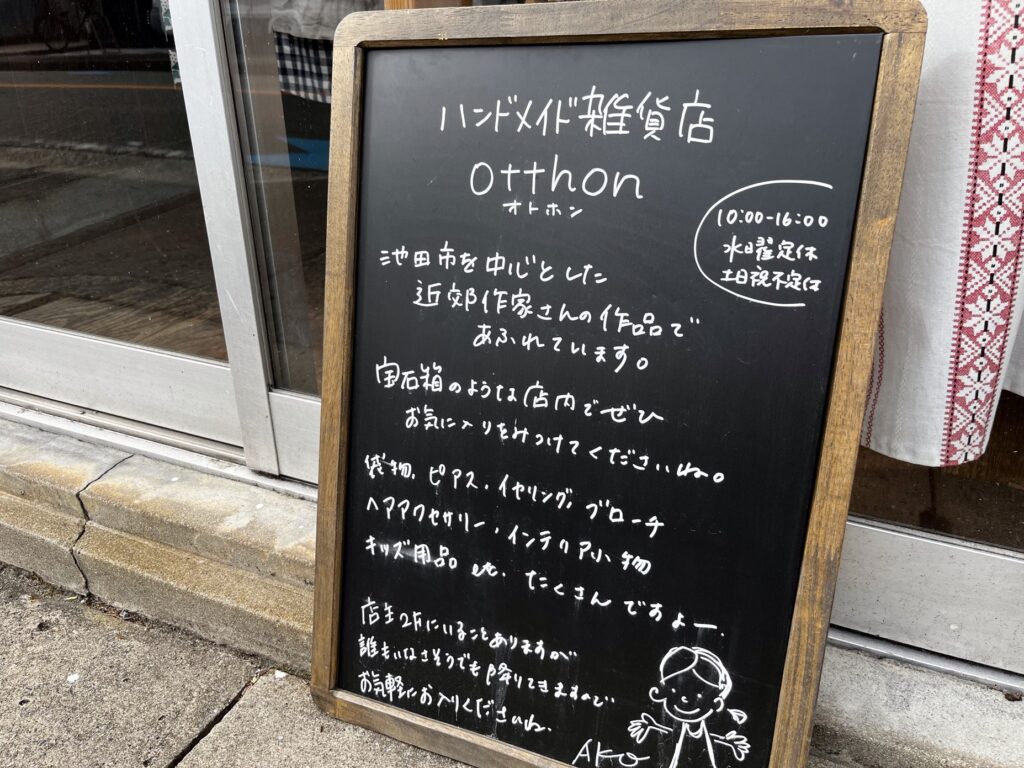 ハンドメイド雑貨店
otthon
オトホン
10:00-16:00
水曜定休
土日祝不定休
池田市を中心とした
近郊作家さんの作品で
あふれています。
宝石箱のような店内でぜひ
お気に入りをみつけてくださいね。
袋物.ピアス.イヤリング.ブローチ
ヘアアクセサリー.インテリア小物
キッズ用品 etc. たくさんですよー.
店主2Fにいることありますが
誰もいなさそうでも降りてきますので
お気軽にお入りくださいね.
AKO